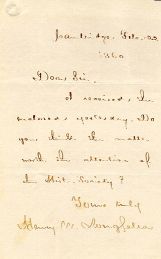 Cambridge, Feb. 22
1860
Dear Sir,
I received the
yesterday. Do
you think the matter
worth the attention of
the Hist. Society?
Yours truly
Henry W. Longfellow